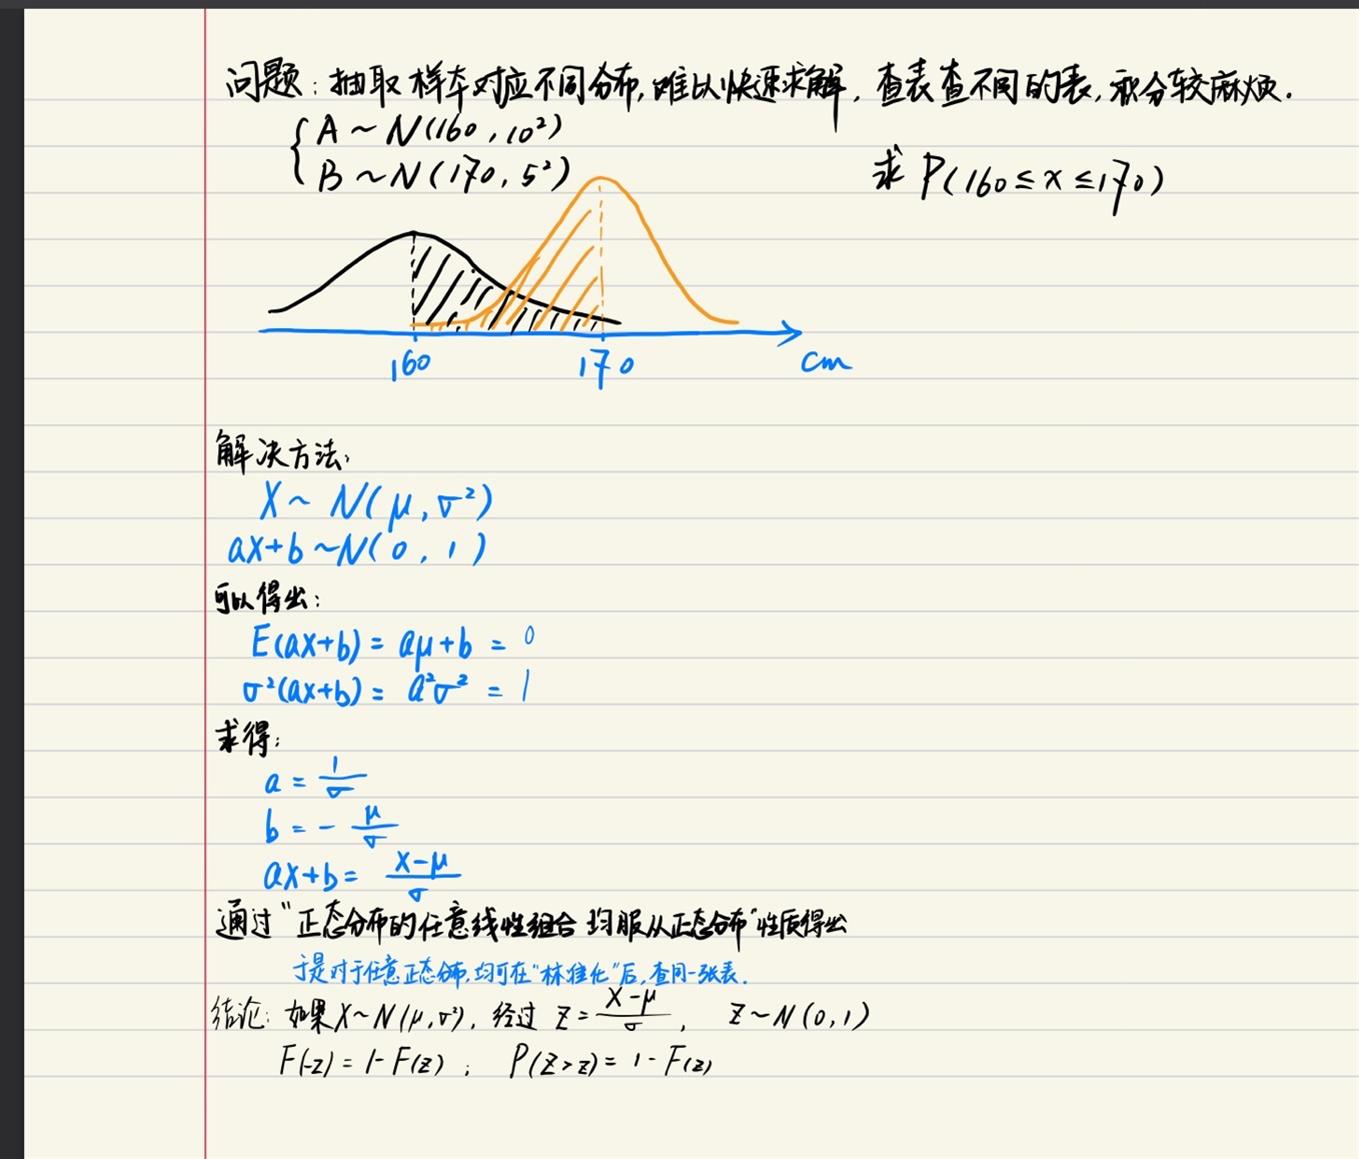 问题：抽取样本对应不同分布,难以快速求解，查表查不同的表,积分较麻烦.
A ~ N(160, 10²)
B ~ N(170, 5²)
求 P(160 ≤ x ≤ 170)
160 170 cm
解决方法:
X ~ N(μ, σ²)
aX+b ~ N(0, 1)
可以得出:
E(aX+b) = aμ+b = 0
σ²(aX+b) = a²σ² = 1
求得:
a = 1/σ
b = - μ/σ
aX+b = (X-μ)/σ
通过“正态分布的任意线性组合均服从正态分布”性质得出
于是对于任意正态分布,均可在“标准化”后,查同一张表.
结论: 如果 X~N(μ,σ²), 经过 Z = (X-μ)/σ, Z ~ N(0,1)
F(-z) = 1- F(z) ; P(Z>z) = 1- F(z)